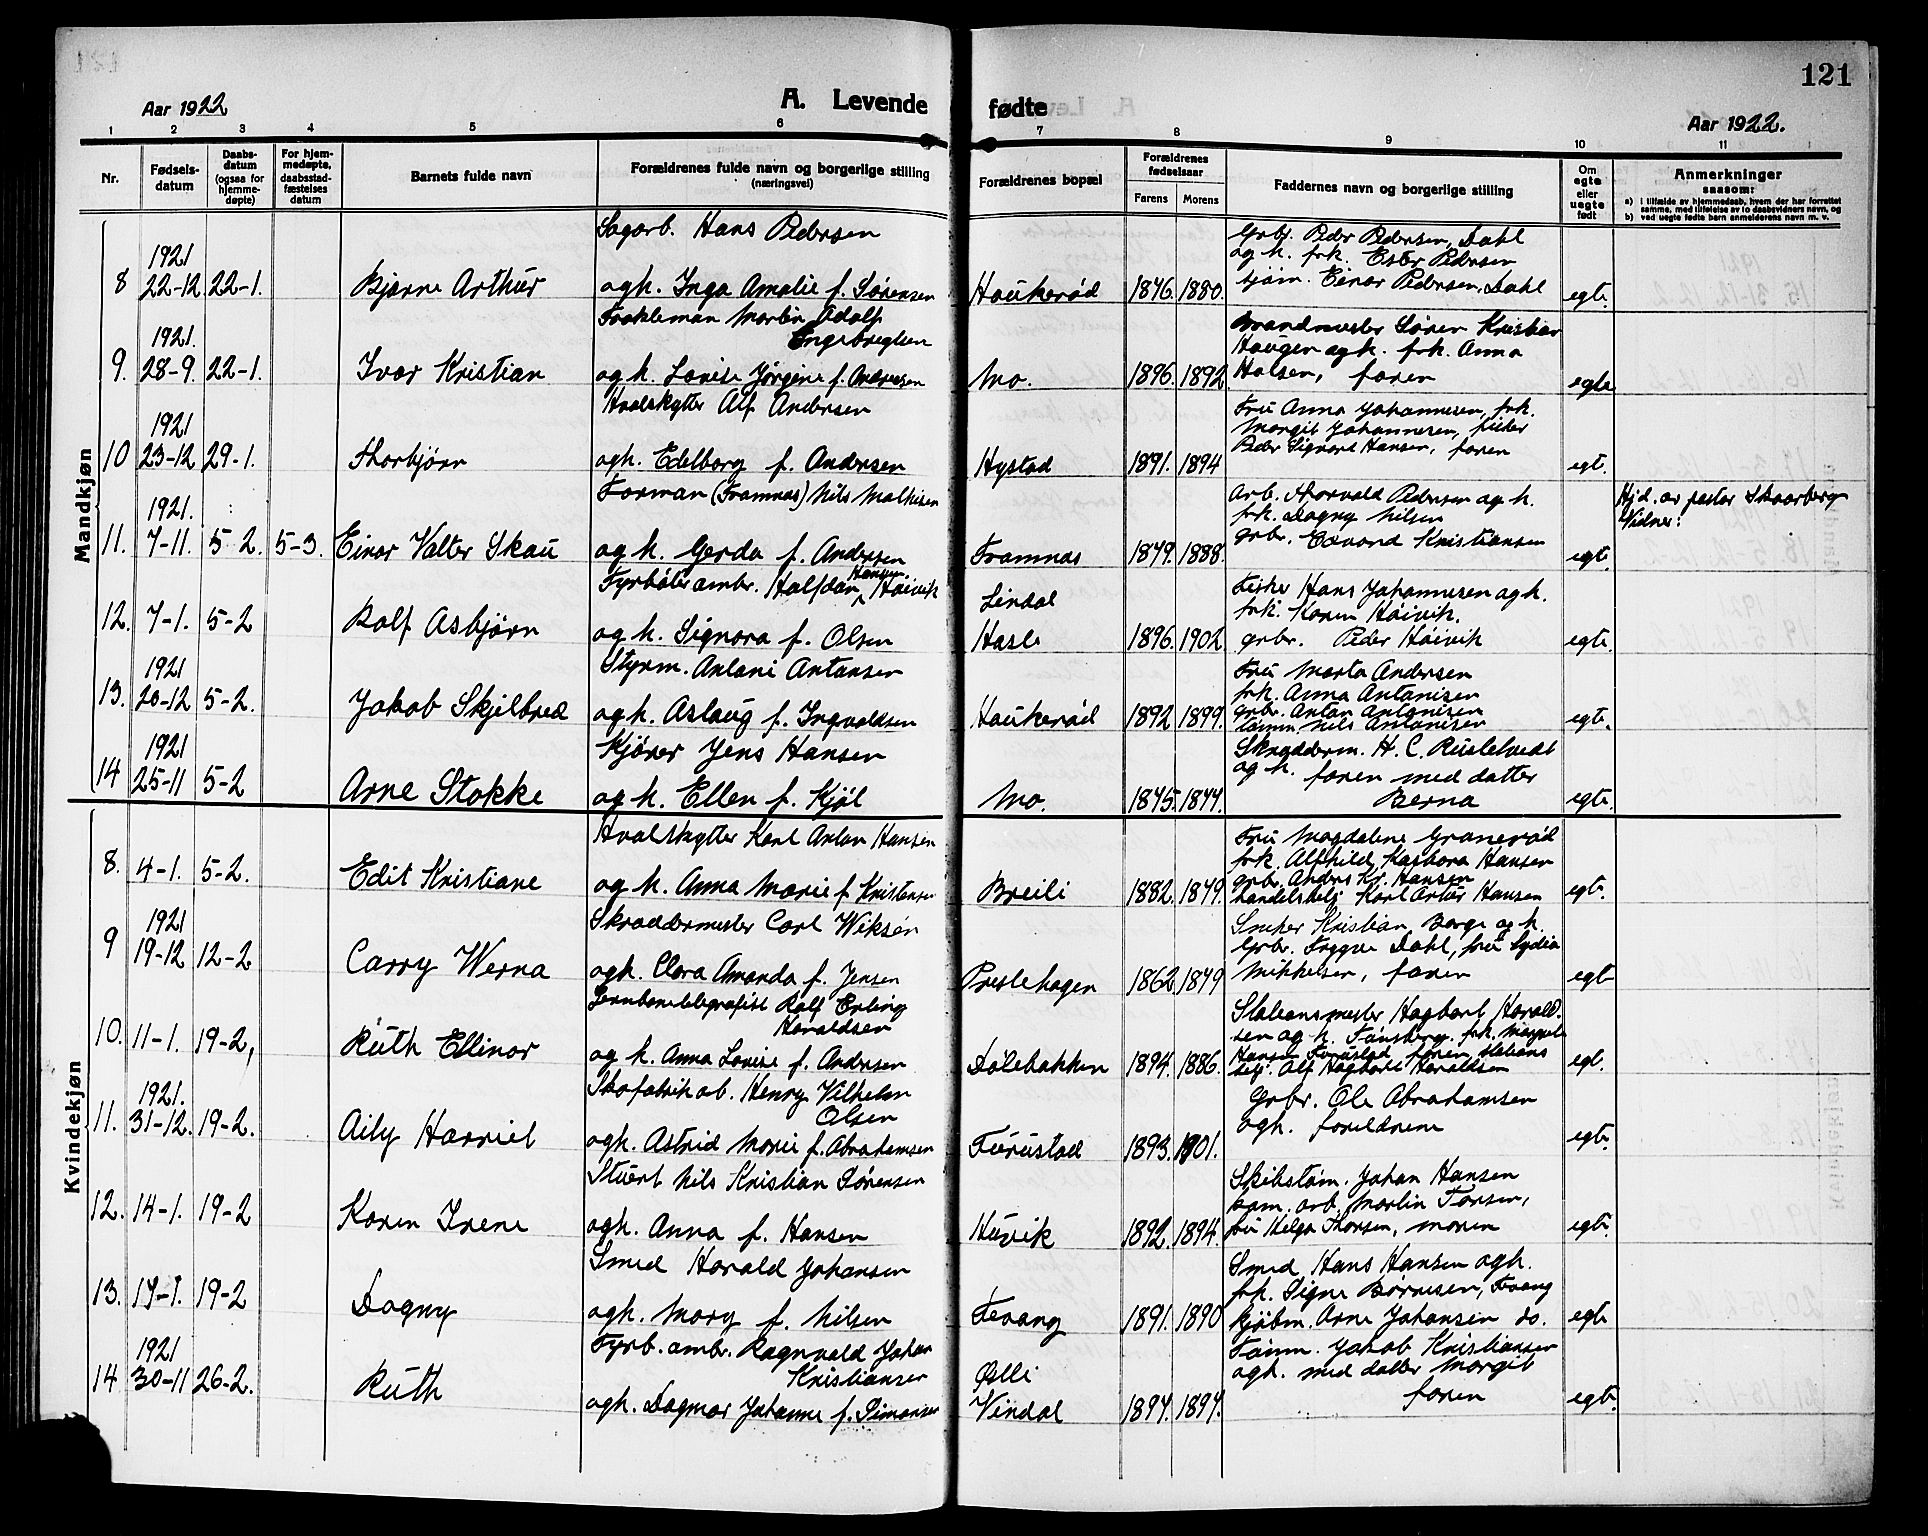 121
Aar 1922
A. Levende fødte
Aar 1922.
1 2 3 4 5 6 7 8 9 10 11
Nr.
Fødsels-
datum
Daabs-
datum
(ogsaa for
hjemme-
døpte)
For hjem-
medøpte,
daabsstad-
fæstelses
datum
Barnets fulde navn
Forældrenes fulde navn og borgerlige stilling
(næringsvei)
Forældrenes bopæl
Forældrenes
fødselsaar
Farens Morens
Faddernes navn og borgerlige stilling
Om
egte
eller
uegte
født
Anmerkninger
saasom:
a) i tilfælde av hjemmedaab, hvem der har forrettet
samme, med tilføielse av to daabsvidners navn, og
b) ved uegte fødte børn anmelderens navn m. v.
Mandkjøn
Sagarb. Hans Pedersen
1921
8 22-12 22-1. Bjarne Arthur
ogh. Inga Amalie f. Sørensen
Haukerød 1876. 1880.
Grbr. Peder Pedersen, Dahl
og h. frk. Ester Pedersen
sjøm. Einar Pedersen, Dahl
egte.
1921.
9. 28-9. 22-1. Ivar Kristian
Martin Adolf
Engebregtsen
og h. Lovise Jørgine f. Andresen
Mo. 1896. 1892
Brandmester Søren Kristian
Haugen og h. frk. Anna
Halsen, faren
egte
1921
10 23-12 29-1. Thorbjørn
Hvalskytter Alf Andersen
ogh. Edelborg f. Andersen
Hystad 1891. 1894
Fru Anna Johannesen, frk.
Margit Johannesen,
Peder Sigvard Hansen, faren
egt.
1921.
11. 7-11. 5-2. 5-3. Einar Valter Skau
Forman (Framnæs) Nils Mathisen
og h. Gerda f. Andersen
Framnæs 1879. 1888.
Arb. Thorvald Pedersen og h.
frk. Dagny Nilsen
grbr. Edvard Kristiansen
egt.
Hjd. av pastor Skaarberg
Vidner:
12. 7-1. 5-2 Rolf Asbjørn
Fyrbøter ambr. Halfdan Hansen Høivik
og h. Signora f. Olsen
Lindal
Hasle 1896. 1902
Fisker Hans Johannesen og h.
frk. Karen Høivik.
grbr. Peder Høivik
egte.
1921
13. 20-12 5-2. Jakob Skjelbred
Styrm. Antoni Antonsen
ogh. Aslaug f. Ingvaldsen
Haukerød 1892 1899.
Fru Marta Andersen
frk. Anna Antonisen
grbr. Anton Antonisen
tømm. Nils Antonisen
egte.
1921
14 25-11 5-2 Arne Stokke
Kjører Jens Hansen
og h. Ellen f. Kjøl
Mo. 1875. 1877.
Skrædderm. H. C. Rustetvedt
og h. faren med datter
Berna
egte.
Kvindekjøn
8. 4-1. 5-2. Edit Kristiane
Hvalskytter Karl Anton Hansen
og h. Anna Marie f. Kristensen
Breili 1882. 1879.
Fru Magdaline Granerød
frk. Alfhild Kasbora Hansen
grbr. Anders Kr. Hansen
handelsbetj. Karl Artur Hansen
egte.
1921
9 19-12 12-2 Carry Werna
Skræddermester Carl Wiksén
ogh. Clara Amanda f. Jensen
Prestehagen 1862 1879
Snekker Kristian Berge og h.
Grbr. Trygve Dahl, fru Lydia
Mikkelsen, faren
egte
10. 11-1. 19-2, Ruth Ellinor
Jernbanetelegrafist Rolf Erling
Haraldsen
og h. Anna Lovise f. Andersen
Dølebakken 1894. 1886.
Stationsmester Hagbart Harald-
sen og h. Tønsberg. frk.
Hansen Furustad faren, stations
betj. Alf Hagbart Haraldsen
egt.
1921.
11. 31-12. 19-2. Aily Harriet
Skofabrikab. Henry Vilhelm
Olsen
ogh. Astrid Marie f. Abrahamsen
Furustad 1893. 1901.
Grbr. Ole Abrahamsen
ogh. forældrene
egte.
12. 14-1. 19-2 Karen Irene
Stuert Nils Kristian Sørensen
ogh. Anna f. Hansen
Huvik 1892. 1894.
Skibstøm. Johan Hansen
kom. arb. Martin Torsen,
fru Helga Thorsen, moren
egte.
13. 17-1. 19-2 Dagny
Smed Harald Johansen
ogh. Mary f. Nilsen
Fevang 1891. 1890
Smed Hans Hansen ogh.
frk. Signe Børresen, Fevang
kjøbm. Arne Johansen do.
egte
1921
14 30-11 26-2. Ruth
Fyrb. ambr. Ragnvald Johan
Kristiansen
ogh. Dagmar Johanne f. Simonsen
Ølli
Vindal 1894. 1897.
Tømm. Jakob Kristiansen
ogh. med datter Margit
faren
egte.